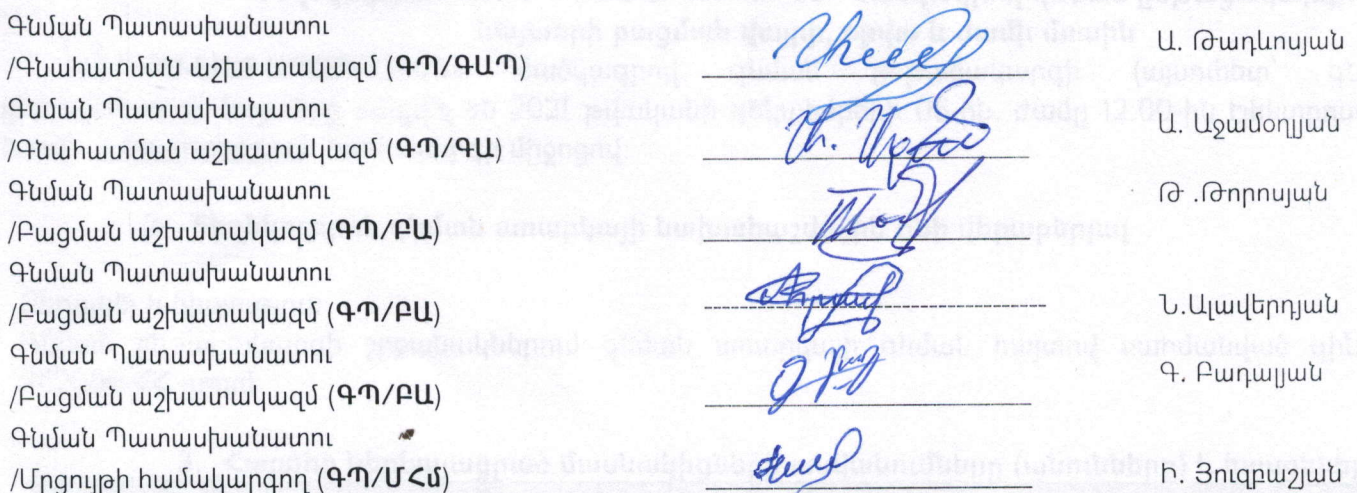 Գնման Պատասխանատու
/Գնահատման աշխատակազմ (ԳՊ/ԳԱՊ) Ա. Թադևոսյան
Գնման Պատասխանատու
/Գնահատման աշխատակազմ (ԳՊ/ԳԱ) Ա. Աջամօղլյան
Գնման Պատասխանատու
/Բացման աշխատակազմ (ԳՊ/ԲԱ) Թ .Թորոսյան
Գնման Պատասխանատու
/Բացման աշխատակազմ (ԳՊ/ԲԱ) Ն.Ալավերդյան
Գնման Պատասխանատու
/Բացման աշխատակազմ (ԳՊ/ԲԱ) Գ. Բադալյան
Գնման Պատասխանատու
/Մրցույթի համակարգող (ԳՊ/ՄՀմ)